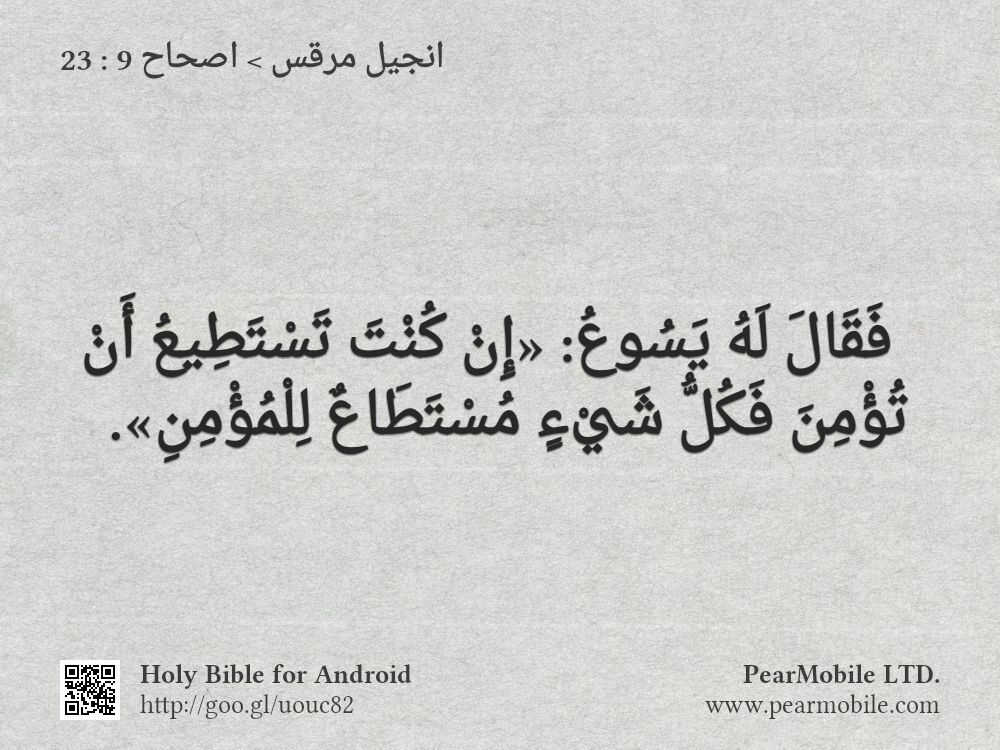 انجيل مرقس > اصحاح 9 : 23
فَقَالَ لَهُ يَسُوعُ: «إِنْ كُنْتَ تَسْتَطِيعُ أَنْ
تُؤْمِنَ فَكُلُّ شَيْءٍ مُسْتَطَاعٌ لِلْمُؤْمِنِ».
Holy Bible for Android
http://goo.gl/uouc82
PearMobile LTD.
www.pearmobile.com